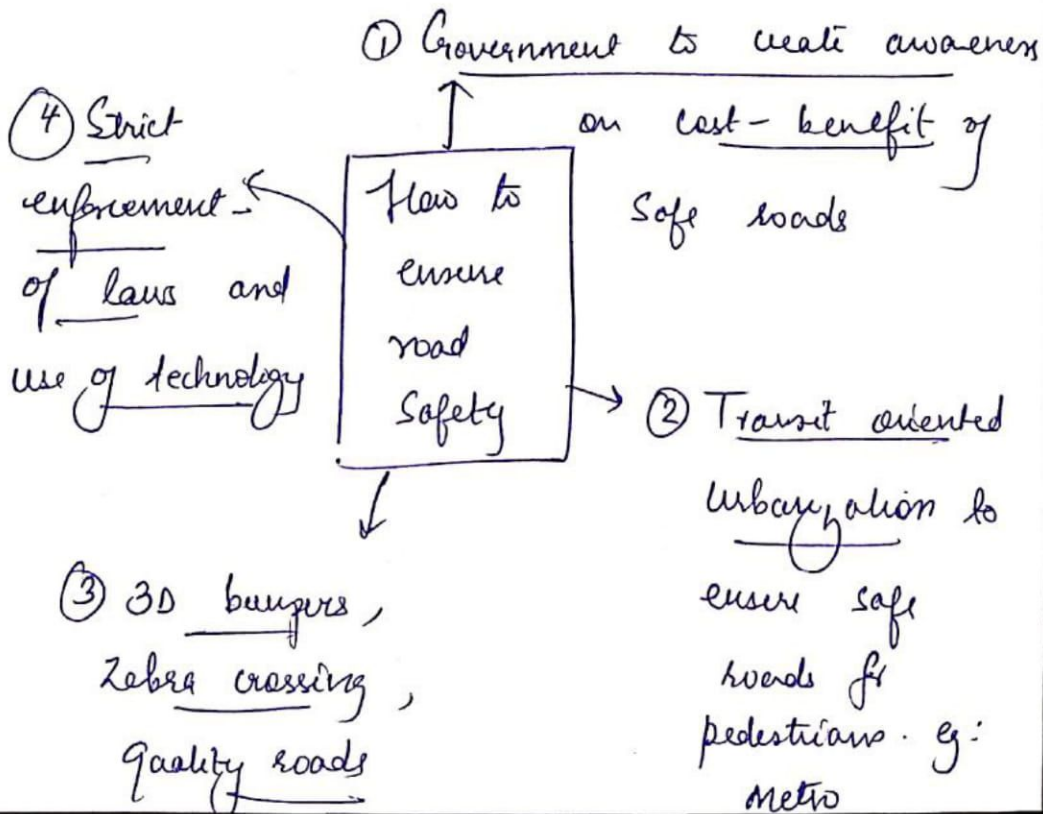 ① Government to create awareness
on cost-benefit of
Safe roads
④ Strict
enforcement
of laws and
use of technology
How to
ensure
road
Safety
② Transit oriented
Urbanization to
ensure safe
roads for
pedestrians. eg:
Metro
③ 3D bumpers,
Zebra crossing,
Quality roads